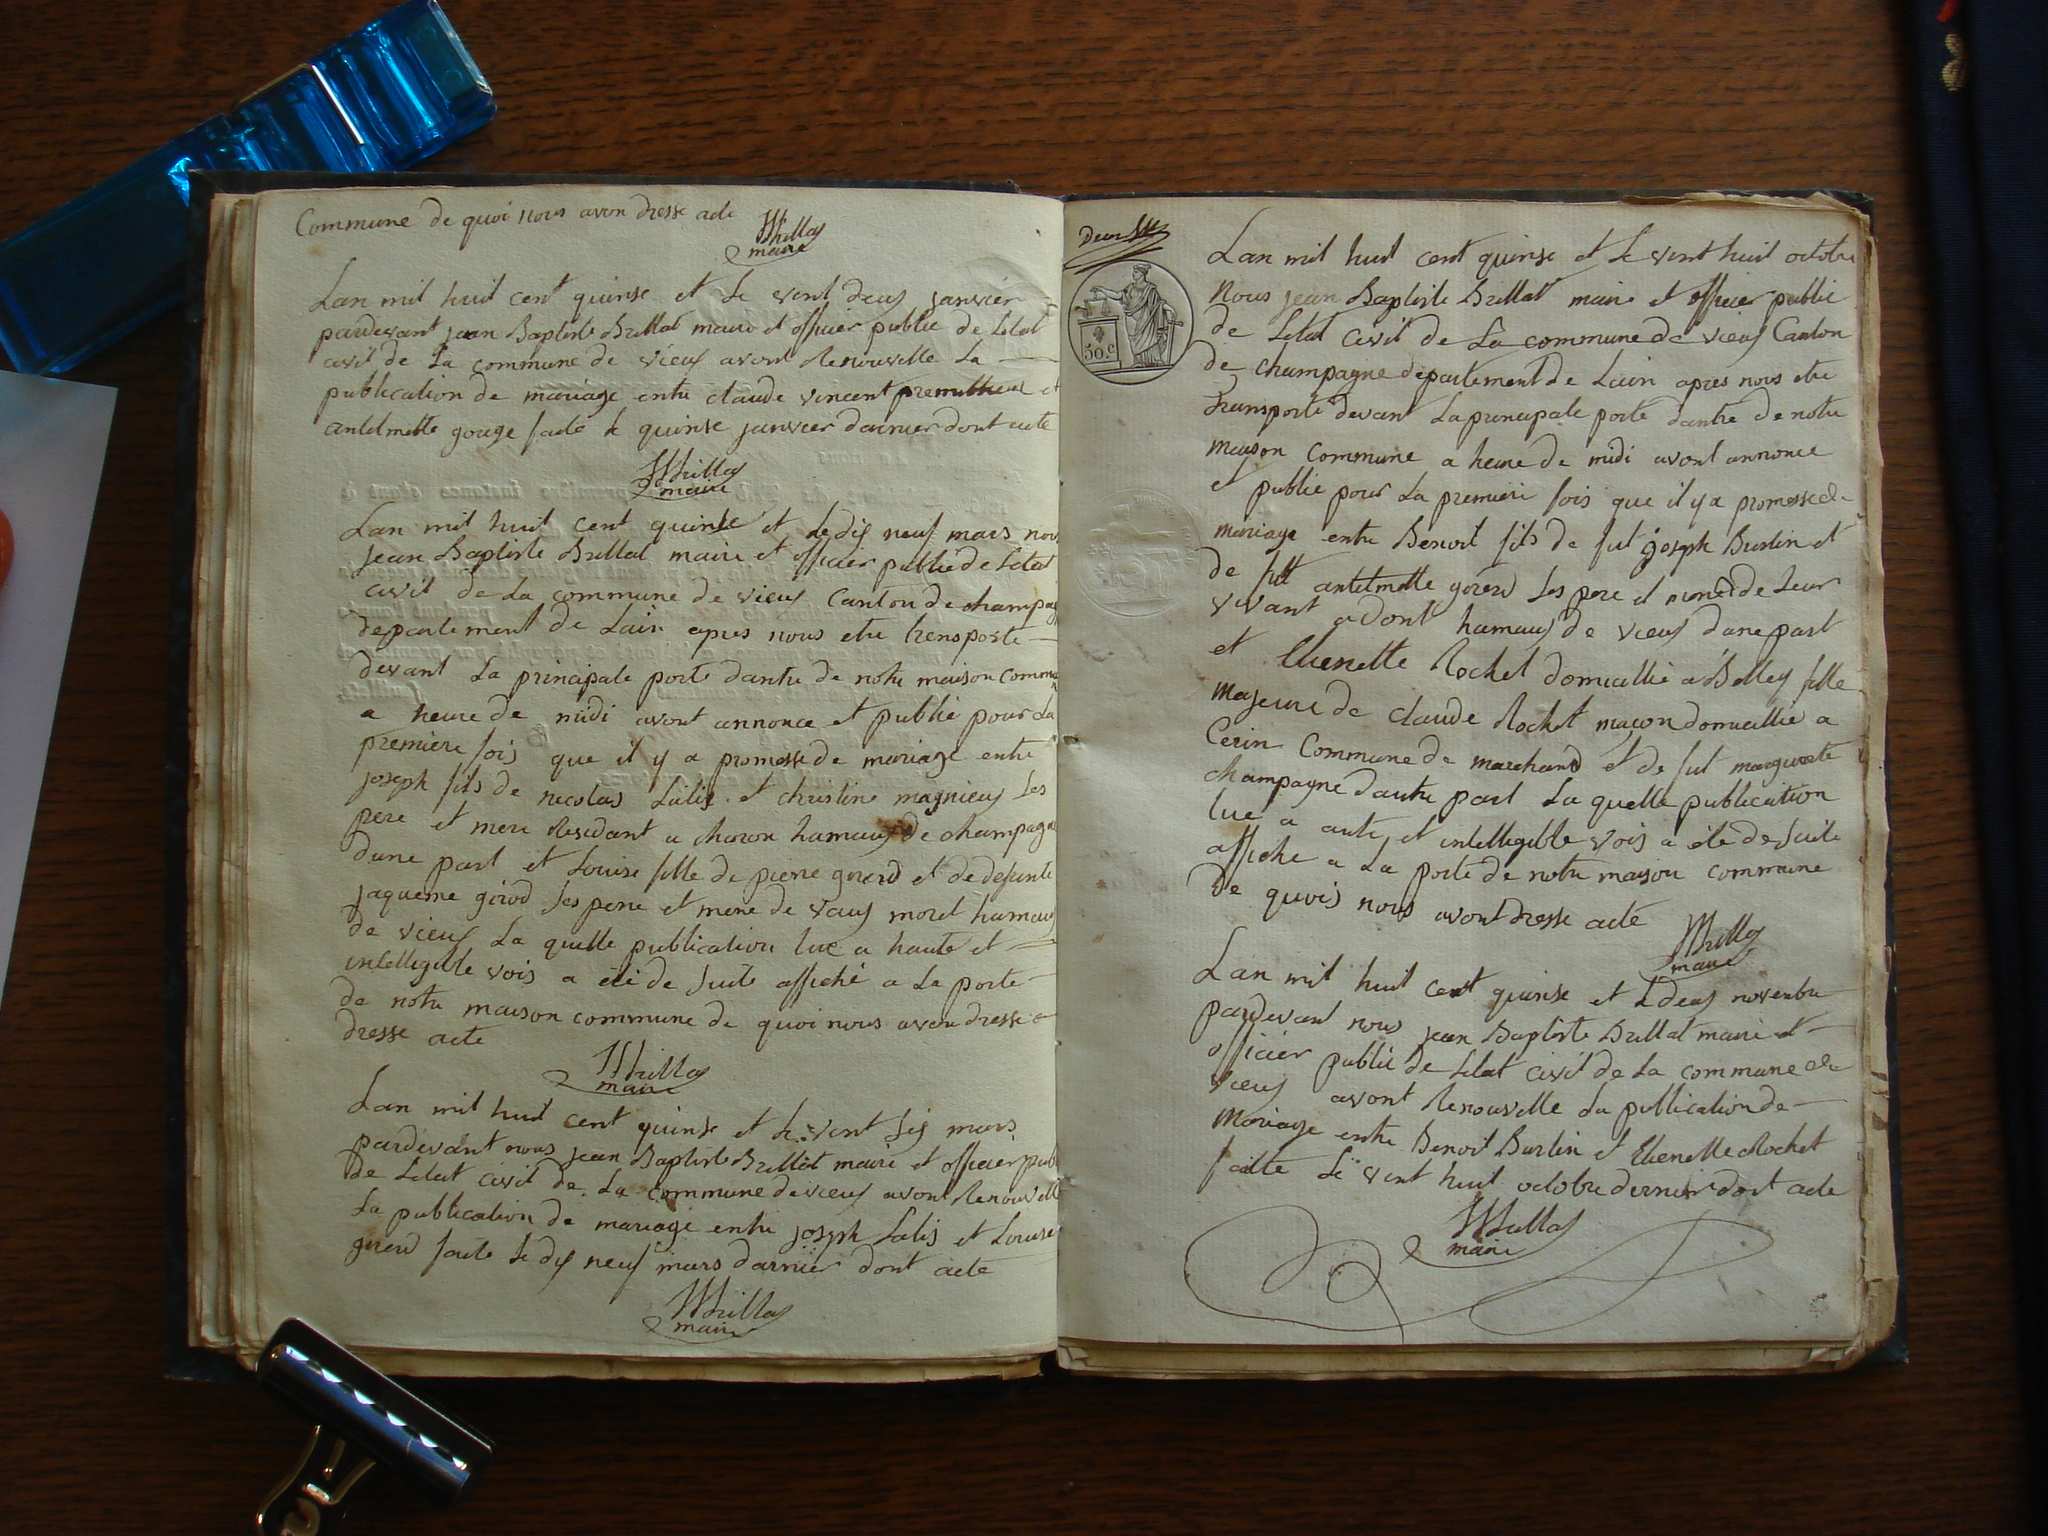 Commune de quoi nous avon dresse acte
JBrillat
maire
Lan mil huit cent quinse et le vent deus janvier
pardevant jean Baptiste Brillat maire et officier public de Letat
civil de La commune de vieus avont Renouvelle La
publication de mariage entre claude vincent et
antelmette gouge faite le quinse janvier darnier dont acte
JBrillat
maire
Lan mil huit cent quinse et le dis neuf mars nous
jean Baptiste Brillat maire et officier public de Letat
civil de La commune de vieus Canton de champag
departement de Lain apres nous etre transporte
devant La principale porte dantre de notre maison commu
a heure de midi avont annonce et publie pour La
premiere fois que il y a promesse de mariage entre
joseph fils de nicolas Lalis et christine magnieus Les
pere et mere Residant a charon hamaus de champagne
dune part et Louise fille de pierre gired et de defunte
jaqueme girod Les pere et mere de vaus moret hamaus
de vieus La quelle publication lue a haute et
intelligible vois a ete de suite affiché a La porte
de notre maison commune de quoi nous avon dresse
dresse acte
JBrillat
maire
Lan mil huit cent quinse et le vent sis mars
pardevant nous jean Baptiste Brillat maire et officier publi
de Letat civil de La commune de vieus avont Renouvelle
La publication de mariage entre joseph Lalis et Louise
gired faite le dis neuf mars darnier dont acte
JBrillat
maire
deux
50 c
Lan mil huit cent quinse et le vent huit octobre
Nous jean Baptiste Brillat maire et officier public
de Letat civil de La commune de vieus Canton
de champagne departement de Lain apres nous etre
transporte devant La principale porte dantre de notre
maison Commune a heure de midi avont annonce
et publie pour La premiere fois que il y a promesse de
mariage entre Benoit fils de fut joseph Burlin et
de fut antelmette gired Les pere et mere de Leur
vivant a dont hamaus de vieus dune part
et Etienette Rochet domicillie a Belley fille
majeure de claude Rochet maçon domicillie a
Cerin Commune de marchand et de fut margurete
champagne dautre part La quelle publication
lue a aute et intelligible vois a ete de suite
affiche a La porte de notre maison commune
de quois nous avont dresse acte
JBrillat
maire
Lan mil huit cent quinse et le deus novembre
pardevant nous jean Baptiste Brillat maire et
officier public de Letat civil de La commune de
vieus avont Renouvelle La publication de
mariage entre Benoit Burlin et Etienette Rochet
faitte le vent huit octobre dernier dont acte
JBrillat
maire